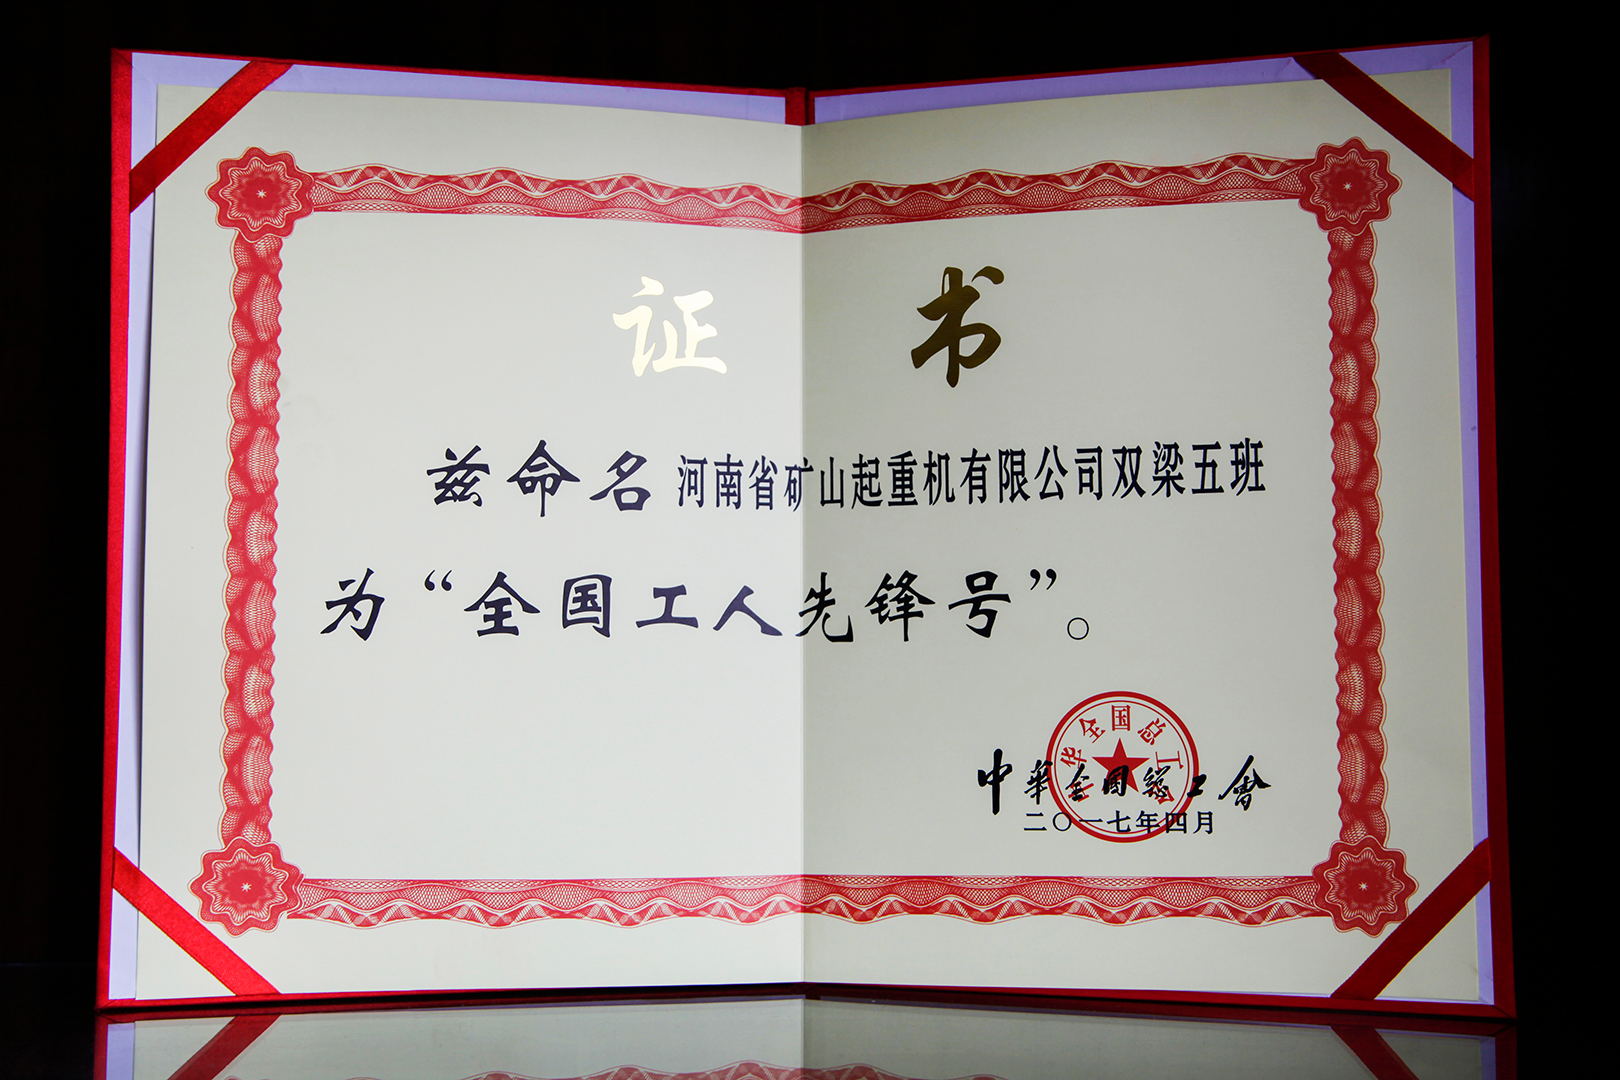 证书
兹命名河南省矿山起重机有限公司双梁五班
为“全国工人先锋号”。
中華全國總工會
二〇一七年四月
中华全国总工会